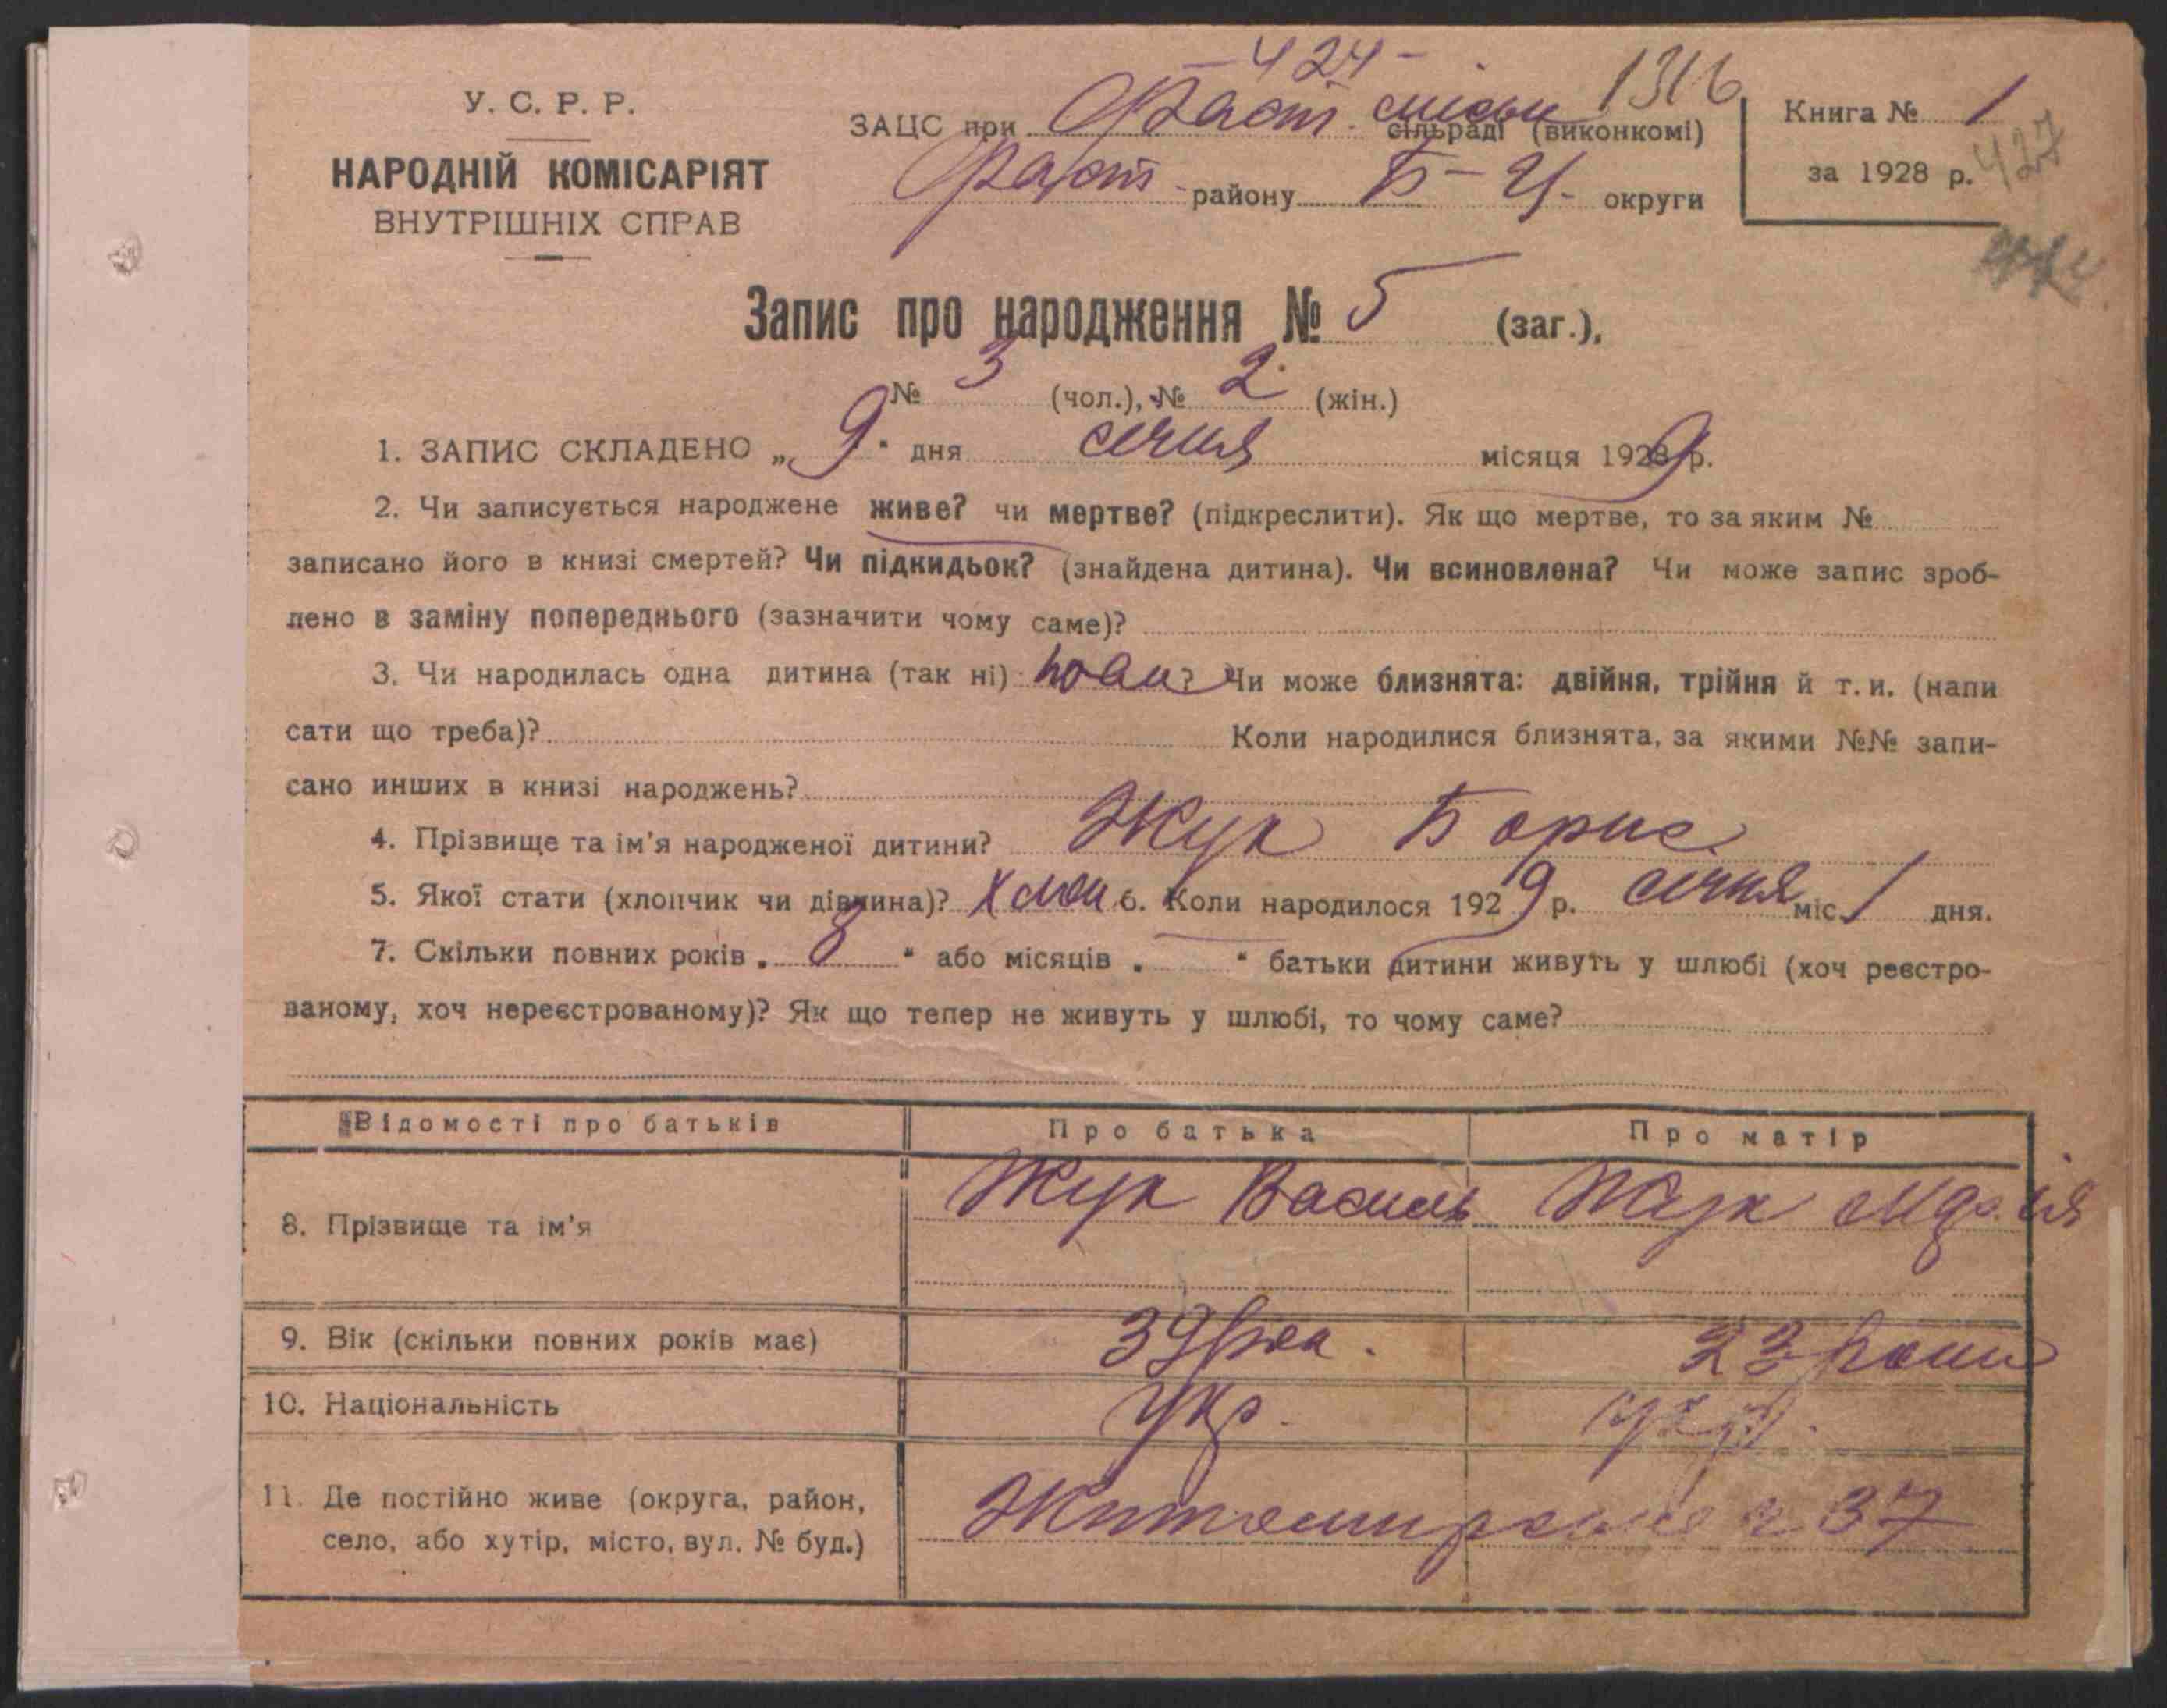 - 424 -
1316
У. С. Р. Р.
НАРОДНІЙ КОМІСАРІЯТ
ВНУТРІШНІХ СПРАВ
ЗАЦС при Фаст. сільраді (виконкомі)
Фаст. району Б-Ц. округи
Книга № 1
за 1928 р. 427
Запис про народження № 5 (заг.),
№ 3 (чол.), № 2 (жін.)
1. ЗАПИС СКЛАДЕНО „ 9 " дня січня місяця 1929 р.
2. Чи записується народжене живе? чи мертве? (підкреслити). Як що мертве, то за яким №
записано його в книзі смертей? Чи підкидьок? (знайдена дитина). Чи всиновлена? Чи може запис зроб-
лено в заміну попереднього (зазначити чому саме)?
3. Чи народилась одна дитина (так ні) ? Чи може близнята: двійня, трійня й т. и. (напи
сати що треба)? Коли народилися близнята, за якими №№ запи-
сано инших в книзі народжень?
4. Прізвище та ім'я народженої дитини? Жук Борис
5. Якої стати (хлопчик чи дівчина)? Хлоп 6. Коли народилося 1929 р. січня міс. 1 дня.
7. Скільки повних років „ 8 " або місяців „ " батьки дитини живуть у шлюбі (хоч реєстро-
ваному, хоч нереєстрованому)? Як що тепер не живуть у шлюбі, то чому саме?
Відомості про батьків Про батька Про матір
8. Прізвище та ім'я Жук Василь Жук Марія
9. Вік (скільки повних років має) 39 рок. 23 роки
10. Національність Укр. укр.
11. Де постійно живе (округа, район,
село, або хутір, місто, вул. № буд.) 37